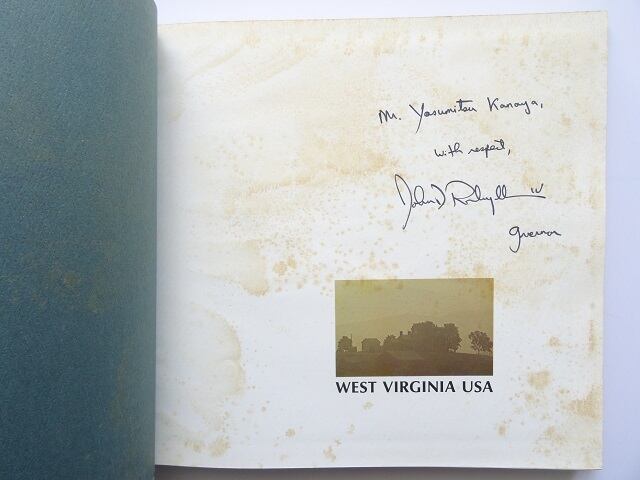 Mr. Yasumitsu Kanaya,
with respect,
John D Rockefeller IV
Governor
WEST VIRGINIA USA